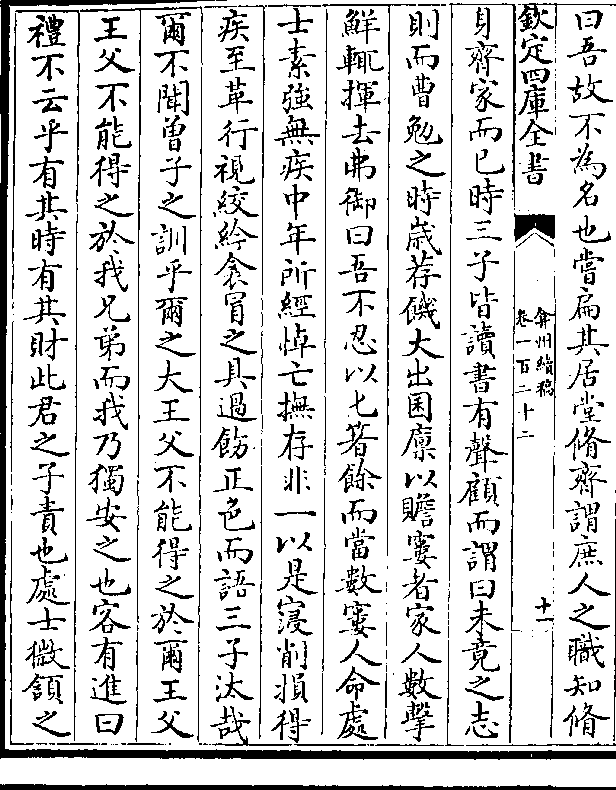 曰吾故不為名也嘗扁其居堂脩齋謂庶人之職知脩
欽定四庫全書
弇州續稿
卷一百二十二
十一
身齊家而已時三子皆讀書有聲顧而謂曰未竟之志
則而曹勉之時歳荐饑大出囷廪以贍窶者家人數擊
鮮輒揮去弗御曰吾不忍以匕箸餘而當數窶人命處
士素強無疾中年所經悼亡撫存非一以是寖削損得
疾至革行視絞紟衾冒之具過飭正色而語三子汰哉
爾不聞曾子之訓乎爾之大王父不能得之於爾王父
王父不能得之於我兄弟而我乃獨安之也客有進曰
禮不云乎有其時有其財此君之子責也處士微頷之